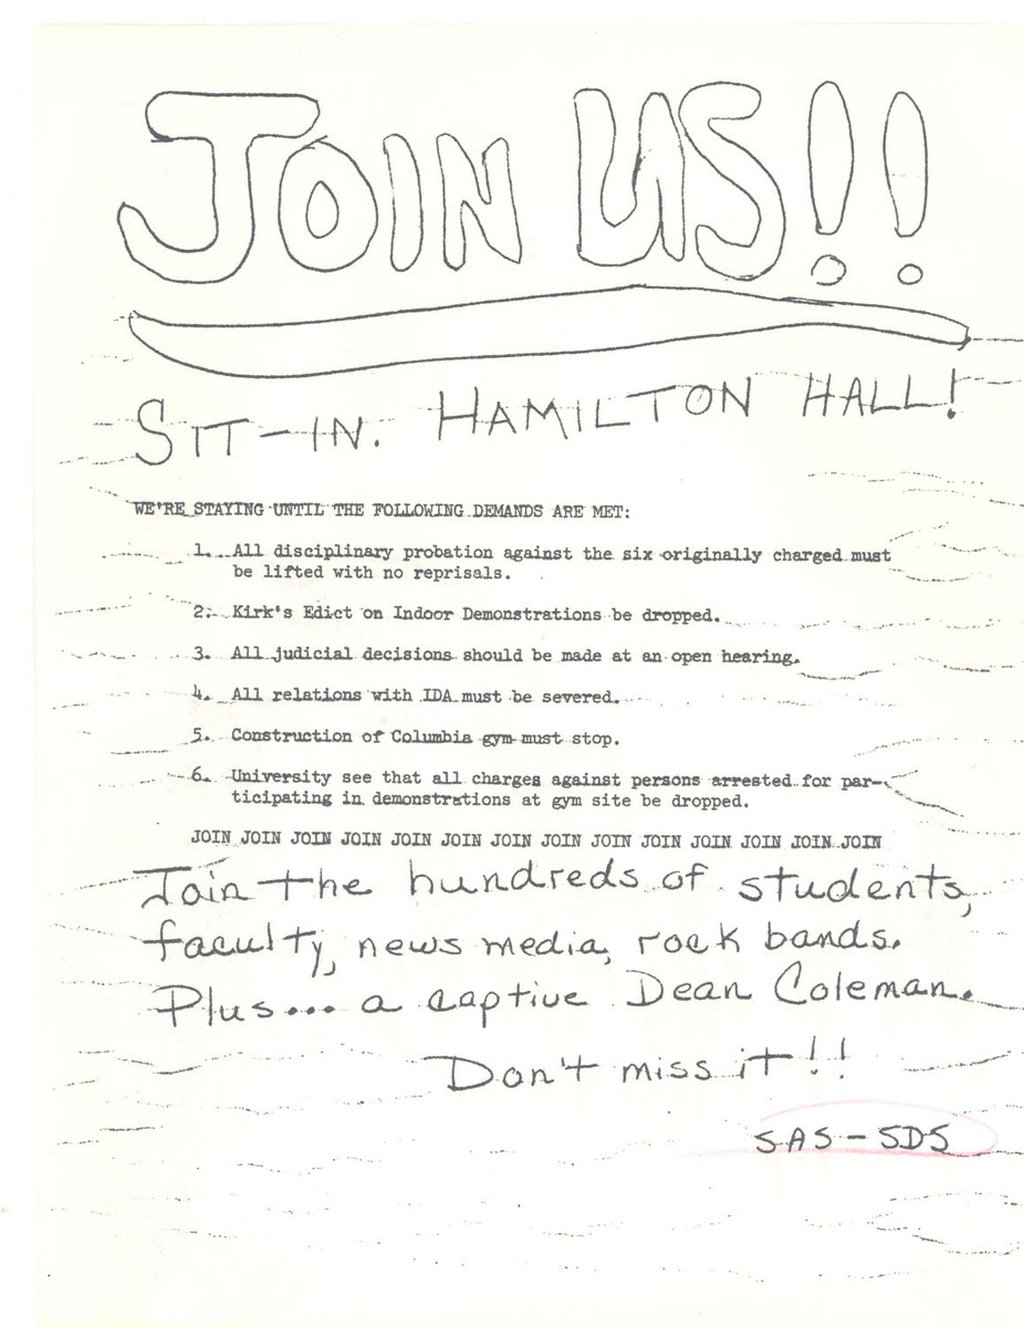 JOIN US!!
SIT-IN. HAMILTON HALL!
WE'RE STAYING UNTIL THE FOLLOWING DEMANDS ARE MET:
1. All disciplinary probation against the six originally charged must
be lifted with no reprisals.
2. Kirk's Edict on Indoor Demonstrations be dropped.
3. All judicial decisions should be made at an open hearing.
4. All relations with IDA must be severed.
5. Construction of Columbia gym must stop.
6. University see that all charges against persons arrested for par-
ticipating in demonstrations at gym site be dropped.
JOIN JOIN JOIN JOIN JOIN JOIN JOIN JOIN JOIN JOIN JOIN JOIN JOIN JOIN
Join the hundreds of students,
faculty, news media, rock bands.
Plus... a captive Dean Coleman.
Don't miss it!!
SAS-SDS